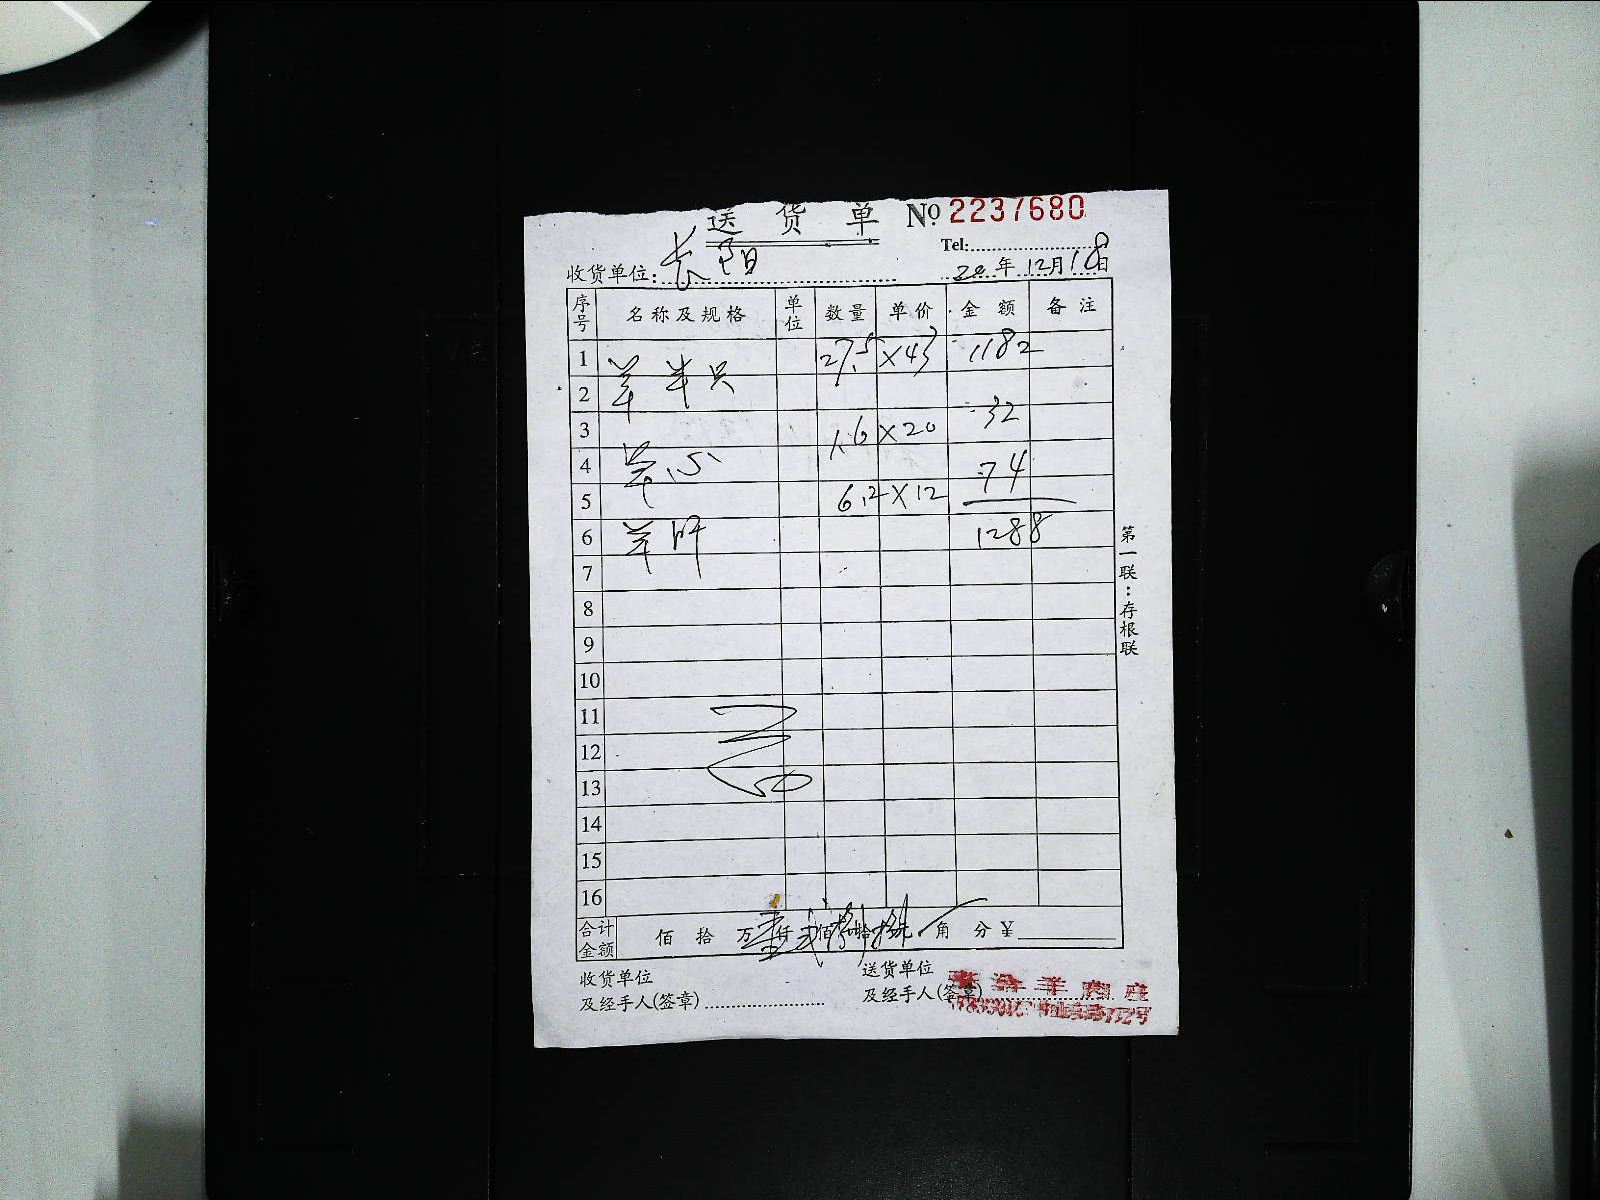 送 货 单 № 2237680
Tel:
收货单位: 长阳 20 年 12 月 18 日
序号 名称及规格 单位 数量 单价 金额 备注
1 羊半只 27.5 ×43 1182
2
3 1.6 ×20 32
4 羊心 74
5 6.2 ×12
6 羊肝 1288
7
8
9
10
11
12
13
14
15
16
合计金额 佰 拾 万 壹 仟 贰 佰 捌 拾 捌 元 角 分 ¥
收货单位 送货单位
及经手人(签章) 及经手人(签章)
第一联:存根联